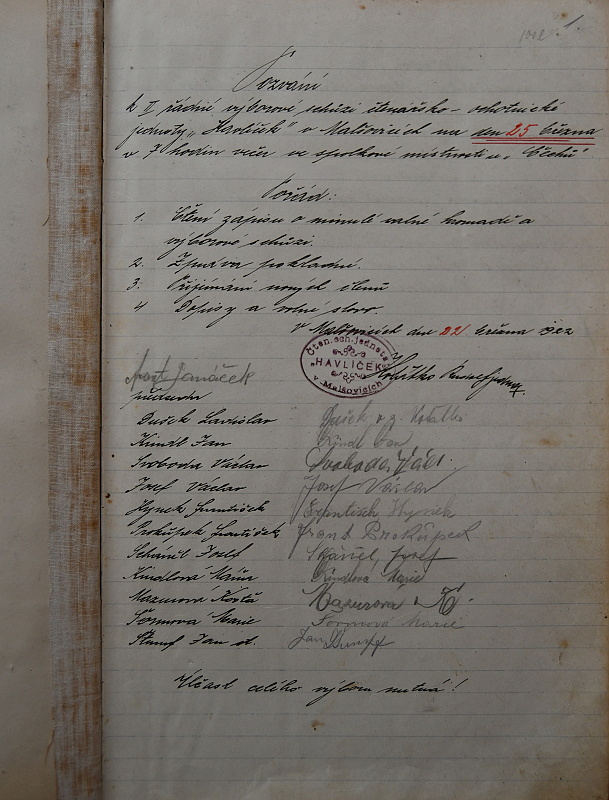 1002 1.
Pozvání
k II řádné výborové schůzi čtenářsko-ochotnické
jednoty „Havlíček“ v Malšovicích na den 25 března
v 7 hodin večer ve spolkové místnosti u „Čechů“
Pořad:
1. Čtení zápisu o minulé valné hromadě a
výborové schůzi.
2. Zpráva pokladní.
3. Přijímání nových členů
4 Dopisy a volné slovo.
V Malšovicích dne 22 března 1922
Čten. och. jednota
„HAVLÍČEK“
v Malšovicích
Kotátko jednatel
Janáček
předseda
Dušek Ladislav Dušek v. z. Kotátko
Kindl Jan Kindl Jan
Svoboda Václav Svoboda Václ.
Josef Václav Josef Václav
Hynek František František Hynek
Prokůpek František Frant Prokůpek
Schánil Josef Schánil Josef
Kindlová Marie Kindlová Marie
Mazurová Mazurová
Formová Marie Formová Marie
Štumpf Jan st. Jan Štumpf
Účast celého výboru nutná!